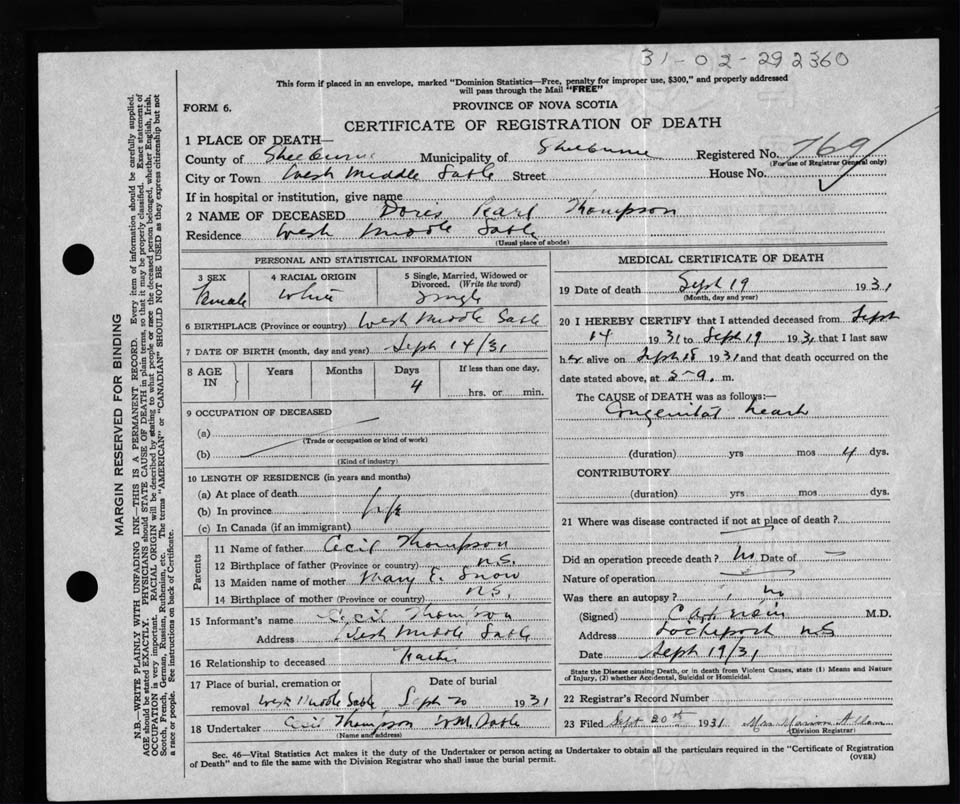 31-02-292360
This form if placed in an envelope, marked "Dominion Statistics—Free, penalty for improper use, $300," and properly addressed
will pass through the Mail "FREE"
FORM 6.
PROVINCE OF NOVA SCOTIA
CERTIFICATE OF REGISTRATION OF DEATH
1 PLACE OF DEATH—
County of Shelburne Municipality of Shelburne Registered No. 769
(For use of Registrar General only)
City or Town West Middle Sable Street House No.
If in hospital or institution, give name
2 NAME OF DECEASED Doris Pearl Thompson
Residence West Middle Sable
(Usual place of abode)
PERSONAL AND STATISTICAL INFORMATION
3 SEX Female
4 RACIAL ORIGIN White
5 Single, Married, Widowed or Divorced. (Write the word) Single
6 BIRTHPLACE (Province or country) West Middle Sable
7 DATE OF BIRTH (month, day and year) Sept 14/31
8 AGE IN Years Months Days 4 If less than one day, hrs. or min.
9 OCCUPATION OF DECEASED
(a)
(Trade or occupation or kind of work)
(b)
(Kind of industry)
10 LENGTH OF RESIDENCE (in years and months)
(a) At place of death
(b) In province life
(c) In Canada (if an immigrant)
Parents
11 Name of father Cecil Thompson
12 Birthplace of father (Province or country) N.S.
13 Maiden name of mother Mary E. Snow
14 Birthplace of mother (Province or country) N.S.
15 Informant's name Cecil Thompson
Address West Middle Sable
16 Relationship to deceased Father
17 Place of burial, cremation or removal West Middle Sable Date of burial Sept 20 1931
18 Undertaker Cecil Thompson W.M. Sable
(Name and address)
MEDICAL CERTIFICATE OF DEATH
19 Date of death Sept 19 1931
(Month, day and year)
20 I HEREBY CERTIFY that I attended deceased from Sept
14 1931 to Sept 19 1931 that I last saw
her alive on Sept 18 1931 and that death occurred on
date stated above, at 5 a. m.
The CAUSE of DEATH was as follows:—
Congenital heart
(duration) yrs mos 4 dys.
CONTRIBUTORY
(duration) yrs mos dys.
21 Where was disease contracted if not at place of death?
Did an operation precede death? No Date of
Nature of operation
Was there an autopsy? No
(Signed) M.D.
Address Lockeport N.S
Date Sept 19/31
State the Disease causing Death, or in death from Violent Causes, state (1) Means and Nature
of Injury, (2) whether Accidental, Suicidal or Homicidal.
22 Registrar's Record Number
23 Filed Sept 20th 1931 Mrs. Marion Allen
(Division Registrar)
Sec. 46—Vital Statistics Act makes it the duty of the Undertaker or person acting as Undertaker to obtain all the particulars required in the "Certificate of Registration
of Death" and to file the same with the Division Registrar who shall issue the burial permit.
(OVER)
MARGIN RESERVED FOR BINDING
N.B.—WRITE PLAINLY WITH UNFADING INK—THIS IS A PERMANENT RECORD. Every item of information should be carefully supplied.
AGE should be stated EXACTLY. PHYSICIANS should STATE CAUSE OF DEATH in plain terms, so that it may be properly classified. Exact statement of
OCCUPATION is very important. RACIAL ORIGIN will be described by stating to what people or race the deceased person belonged, whether English, Irish,
Scotch, French, German, Russian, Ruthenian, etc. The terms "AMERICAN" or "CANADIAN" SHOULD NOT BE USED as they express citizenship but not
a race or people. See instructions on back of Certificate.